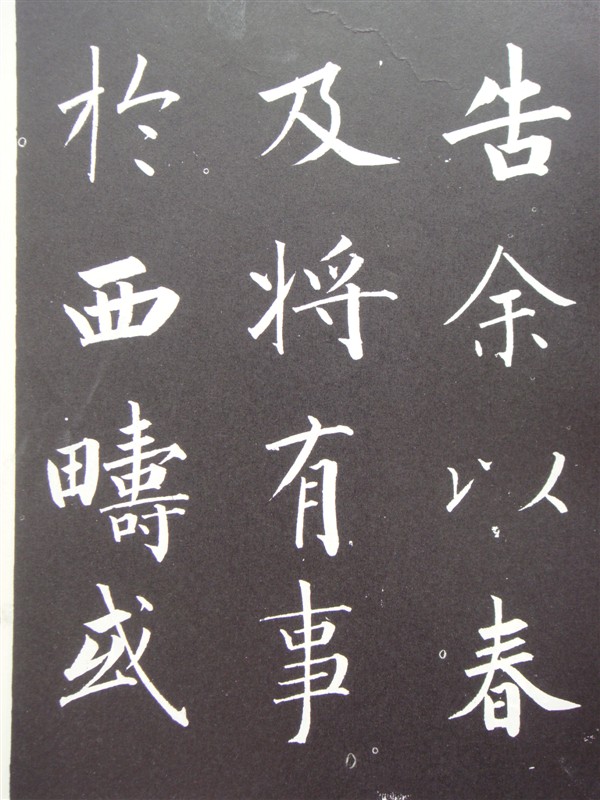 告余以春
及将有事
於西疇或